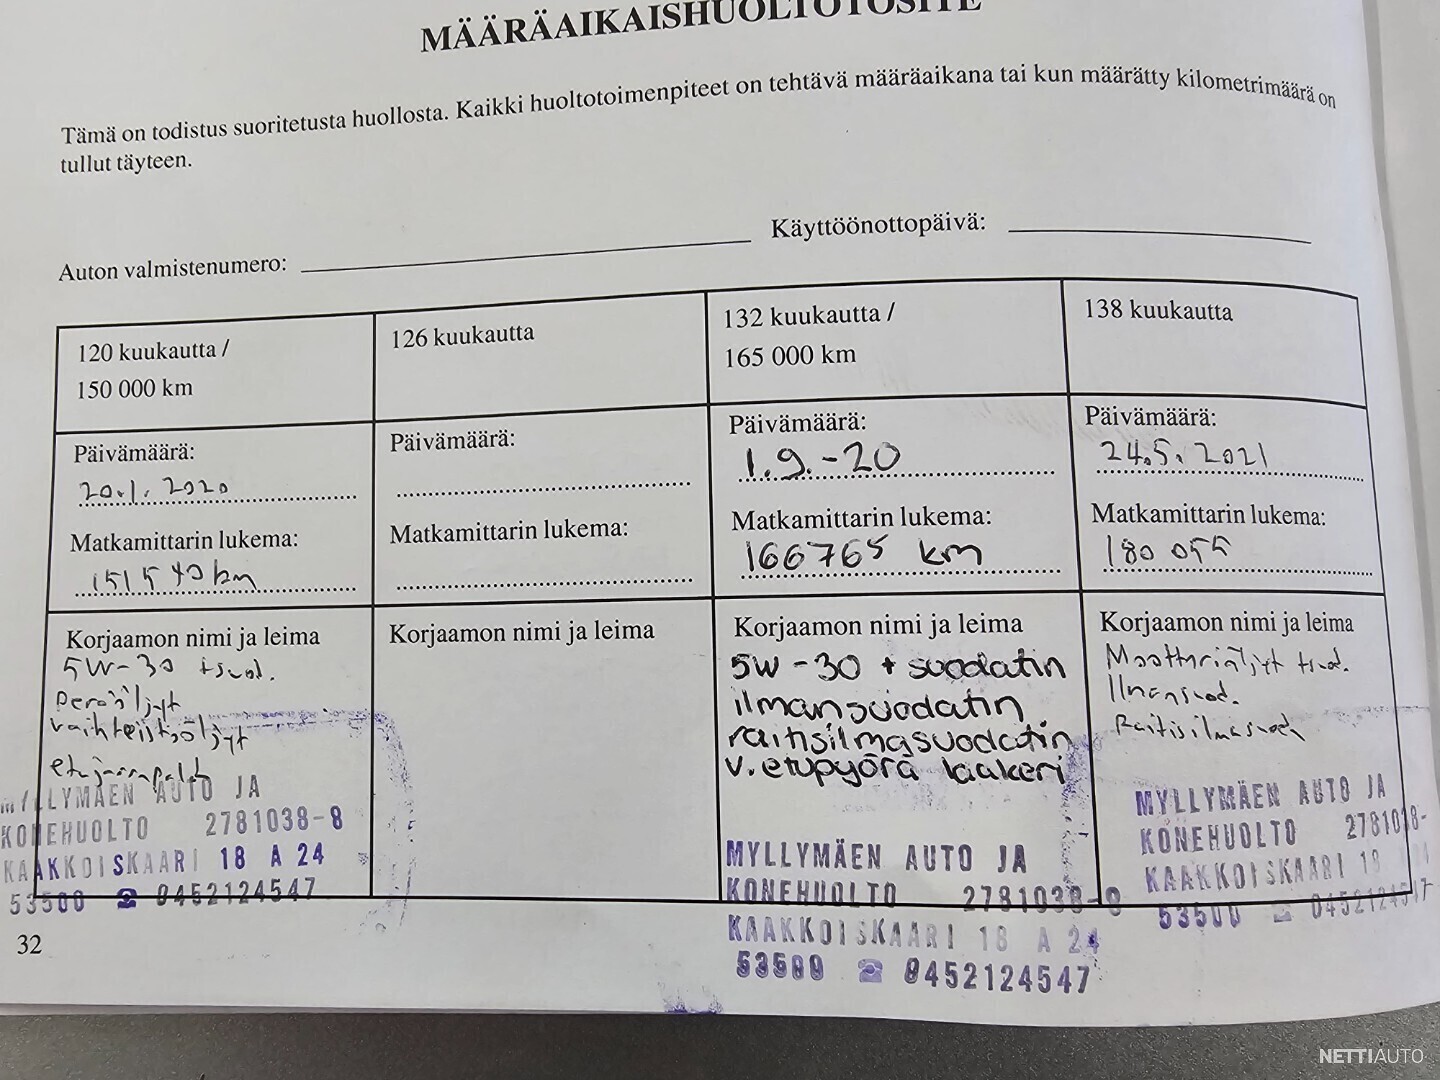 MÄÄRÄAIKAISHUOLTOTOSITE
Tämä on todistus suoritetusta huollosta. Kaikki huoltotoimenpiteet on tehtävä määräaikana tai kun määrätty kilometrimäärä on
tullut täyteen.
Auton valmistenumero:
Käyttöönottopäivä:
120 kuukautta /
150 000 km
Päivämäärä:
20.1.2020
Matkamittarin lukema:
151540 km
Korjaamon nimi ja leima
5W-30 + suod.
Peräöljyt
vaihteistoöljyt
etujarrupalat
MYLLYMÄEN AUTO JA
KONEHUOLTO 2781038-8
KAAKKOISKAARI 18 A 24
53500 ☎ 0452124547
126 kuukautta
Päivämäärä:
Matkamittarin lukema:
Korjaamon nimi ja leima
132 kuukautta /
165 000 km
Päivämäärä:
1.9.-20
Matkamittarin lukema:
166765 km
Korjaamon nimi ja leima
5W-30 + suodatin
ilmansuodatin
raitisilmasuodatin
v.etupyörä laakeri
MYLLYMÄEN AUTO JA
KONEHUOLTO 2781038-8
KAAKKOISKAARI 18 A 24
53500 ☎ 0452124547
138 kuukautta
Päivämäärä:
24.5.2021
Matkamittarin lukema:
180 055
Korjaamon nimi ja leima
Moottoriöljyt + suod.
Ilmansuod.
Raitisilmasuod
MYLLYMÄEN AUTO JA
KONEHUOLTO 2781038-
KAAKKOISKAARI 18
53500 ☎ 0452124547
32
NETTIAUTO